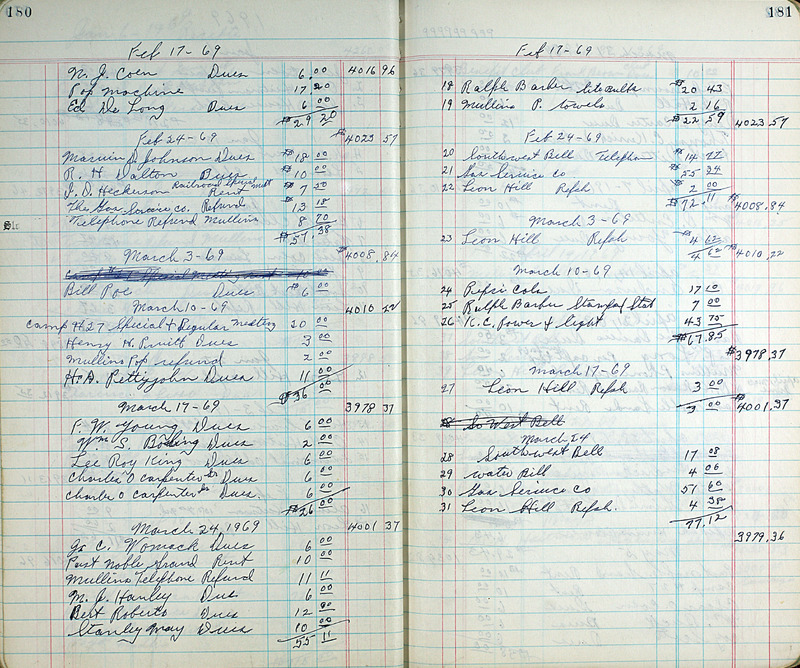 180
Feb 17-69
N. J. Coen Dues 6.00 4016 96
Pop Machine 17.20
Ed De Long Dues 6 00
$29 20
Feb 24-69 $4023 57
Marvin D Johnson Dues $18 00
R. H. Dalton Dues $10 00
J. D. Heckerson Railroad Special Meet Rent $7 50
The Gas Service Co. Refund 13 18
Telephone Refund Mullins 8 70
$57.38
March 3-69 $4008.84
Bill Poe Dues $6 00
March 10-69 4010 22
Camp #27 Special & Regular Meeting 20 00
Henry H. Pruitt Dues 3 00
Mullins Pop refund 2 00
H. A. Pettyjohn Dues 11 00
$36 00
March 17-69 3978 37
F. W. Young Dues 6 00
Wm. S. Boeing Dues 2 00
Lee Roy King Dues 6 00
Charles O Carpenter Sr Dues 6 00
Charles O Carpenter Dues. 6 00
$26 00
March 24, 1969 4001 37
C. Womack Dues 6 00
Past Noble Grand Rent 10 00
Mullins Telephone Refund 11 11
M. J. Hanley Due 6 00
Bert Roberts Dues 12 00
Stanley May Dues 10 00
55 11
181
Feb 17-69
18 Ralph Barber lite Bulbs $20 43
19 Mullins P. towels 2 16
$22 59 4023.57
Feb 24-69
20 Southwest Bell Telephon $14 77
21 Gas Service Co $55 34
22 Leon Hill Refsh $2 00
$72.11 $4008.84
March 3-69
23 Leon Hill Refsh $4 62
4 62 $4010.22
March 10-69
24 Pepsi Cola 17 10
25 Ralph Barber Stamps & Stat 7 00
26 K.C. Power & Light 43 75
$67.85
$3978.37
March 17-69
27 Leon Hill Refsh 3 00
3 00 $4001.37
28 So West Bell
March 24
28 Southwest Bell 17 08
29 Water Bill 4 06
30 Gas Service Co 51 60
31 Leon Hill Refsh. 4 38
77.12
3979.36